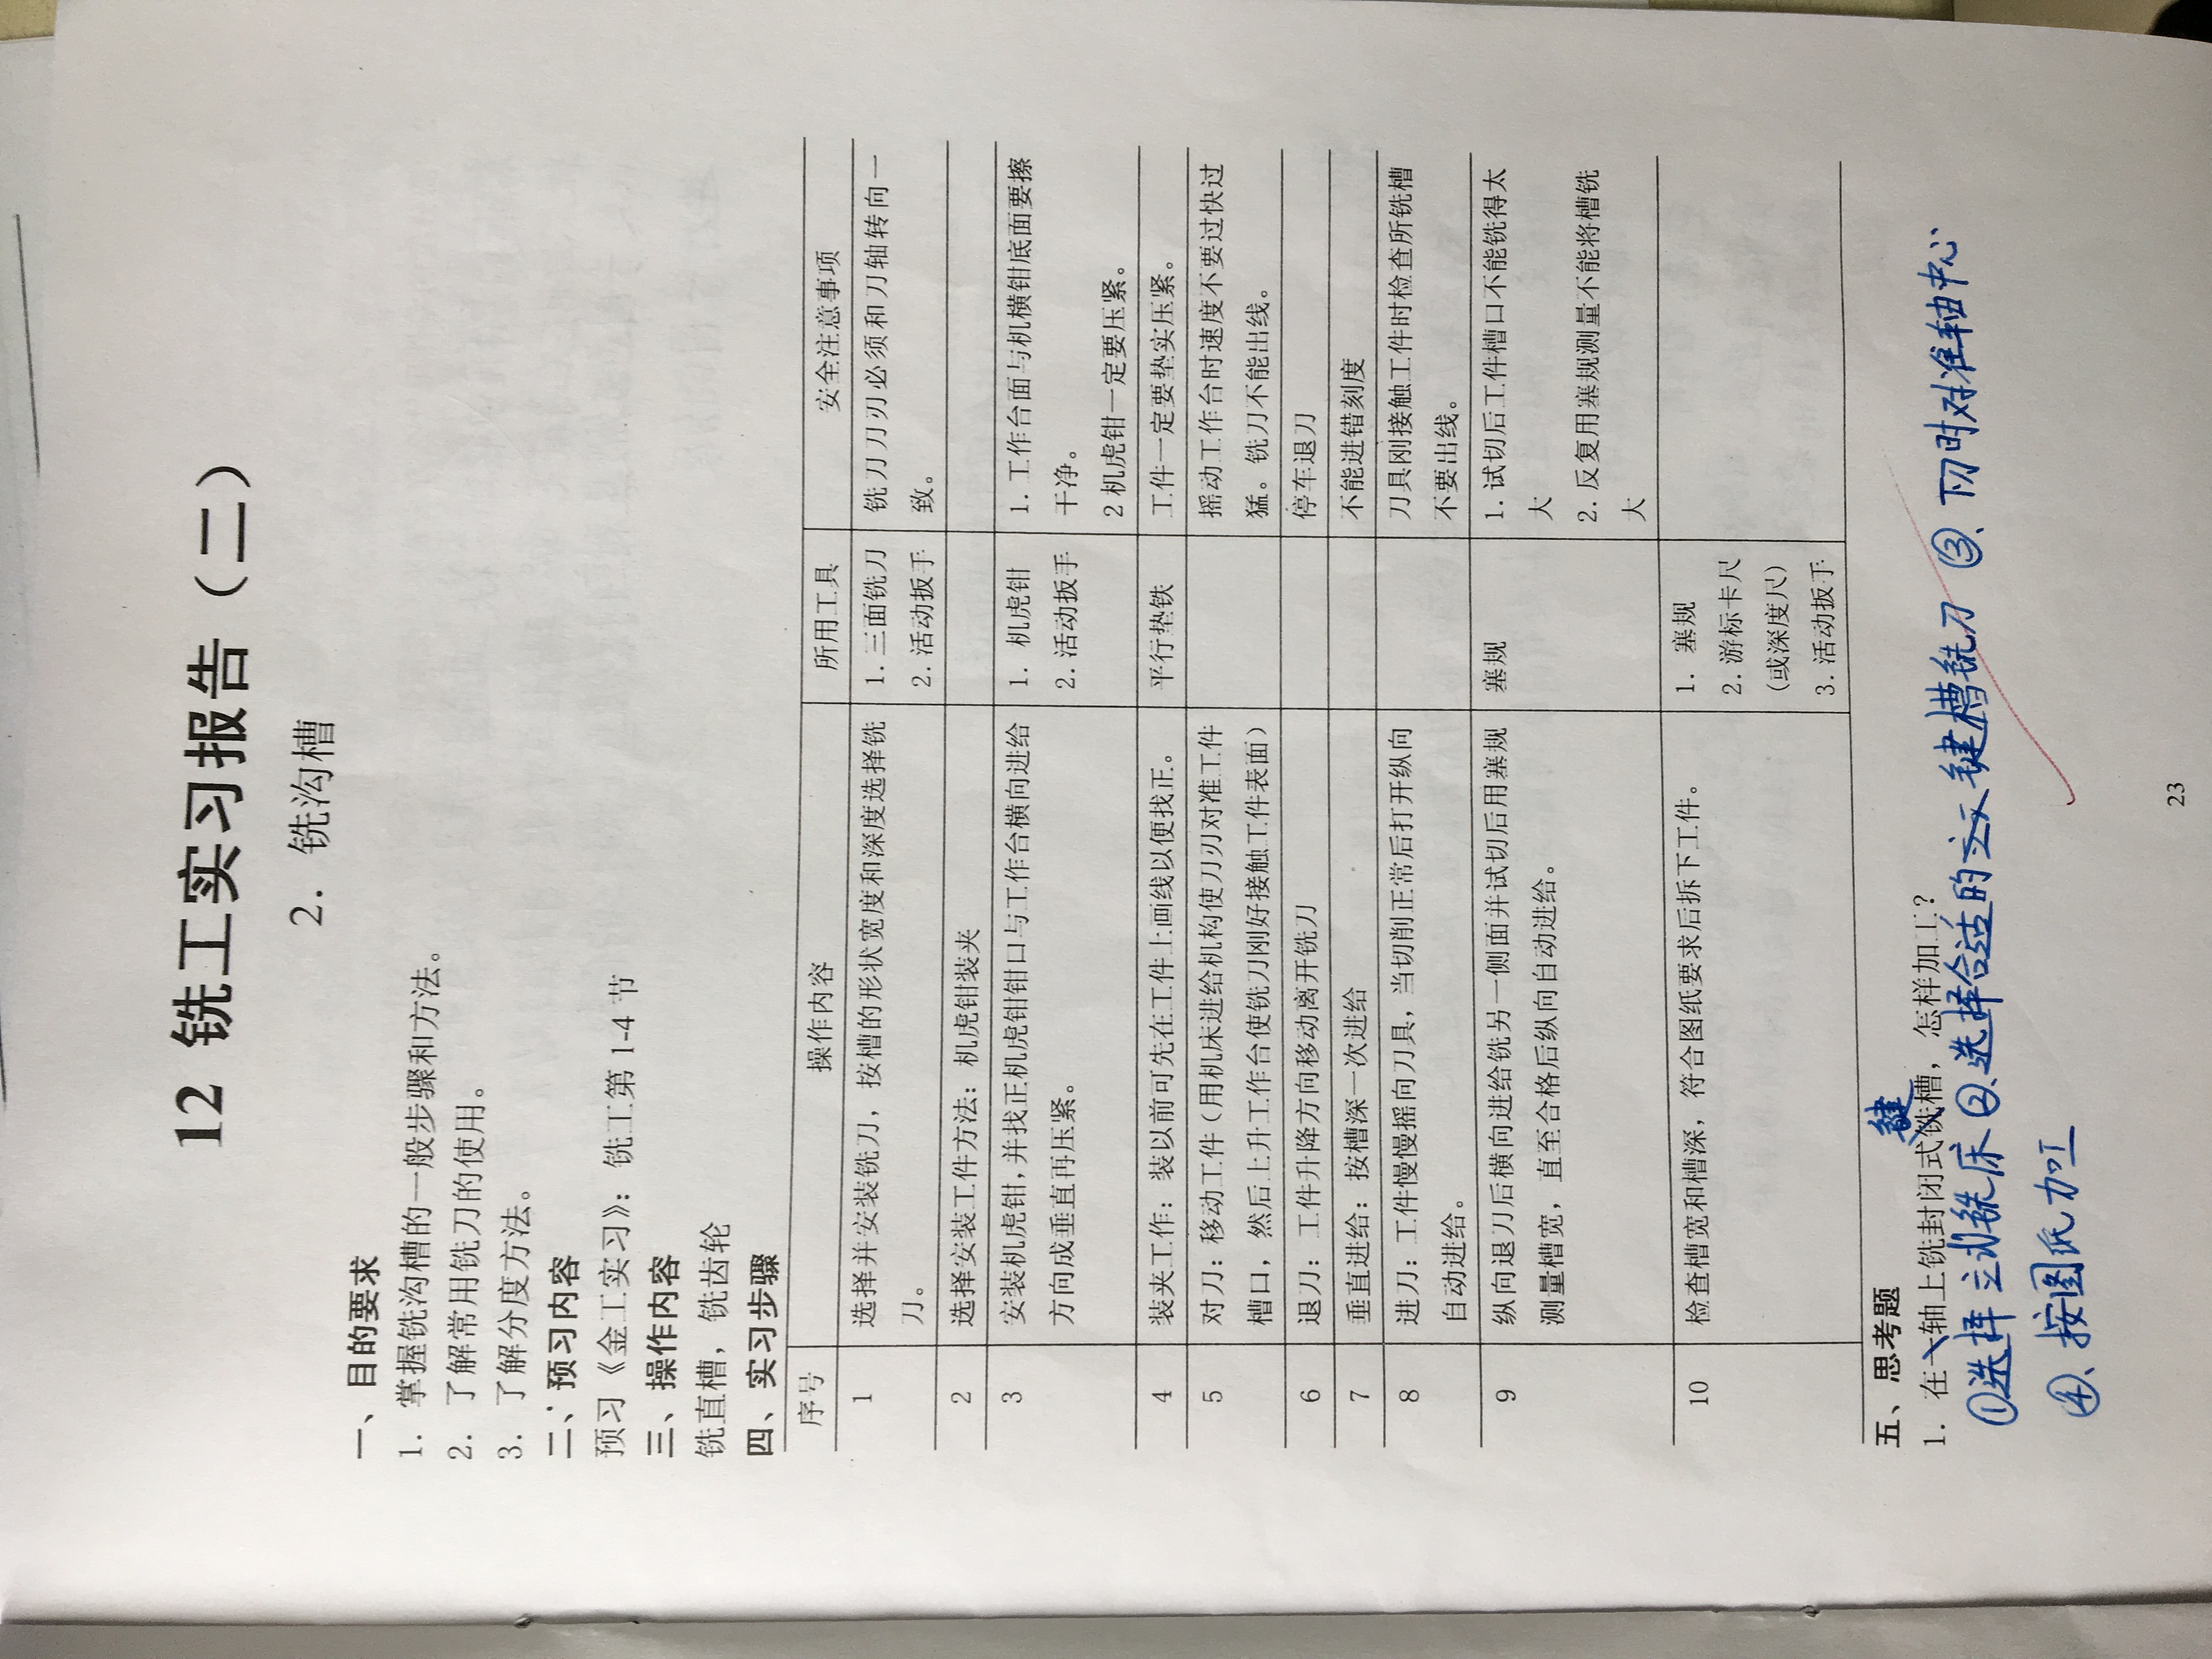 12 铣工实习报告（二）
2. 铣沟槽
一、目的要求
1. 掌握铣沟槽的一般步骤和方法。
2. 了解常用铣刀的使用。
3. 了解分度方法。
二、预习内容
预习《金工实习》：铣工第 1-4 节
三、操作内容
铣直槽，铣齿轮
四、实习步骤
序号 操作内容 所用工具 安全注意事项
1 选择并安装铣刀，按槽的形状宽度和深度选择铣 1. 三面铣刀 铣刀刀刃必须和刀轴转向一
刀。 2. 活动扳手 致。
2 选择安装工件方法：机虎钳装夹
3 安装机虎钳，并找正机虎钳钳口与工作台横向进给 1. 机虎钳 1. 工作台面与机横钳底面要擦
方向成垂直再压紧。 2. 活动扳手 干净。
2 机虎钳一定要压紧。
4 装夹工作：装以前可先在工件上画线以便找正。 平行垫铁 工件一定要垫实压紧。
5 对刀：移动工件（用机床进给机构使刀刃对准工件 摇动工作台时速度不要过快过
槽口，然后上升工作台使铣刀刚好接触工件表面） 猛。铣刀不能出线。
6 退刀：工件升降方向移动离开铣刀 停车退刀
7 垂直进给：按槽深一次进给 不能进错刻度
8 进刀：工件慢慢摇向刀具，当切削正常后打开纵向 刀具刚接触工件时检查所铣槽
自动进给。 不要出线。
9 纵向退刀后横向进给铣另一侧面并试切后用塞规 塞规 1. 试切后工件槽口不能铣得太
测量槽宽，直至合格后纵向自动进给。 大
2. 反复用塞规测量不能将槽铣
大
10 检查槽宽和槽深，符合图纸要求后拆下工件。 1. 塞规
2. 游标卡尺
(或深度尺)
3. 活动扳手
五、思考题
键
1. 在一轴上铣封闭式铣槽，怎样加工？
①选择立式铣床 ②、选择合适的 键槽铣刀 ③、下刀时对准轴中心
④、按图纸加工
23